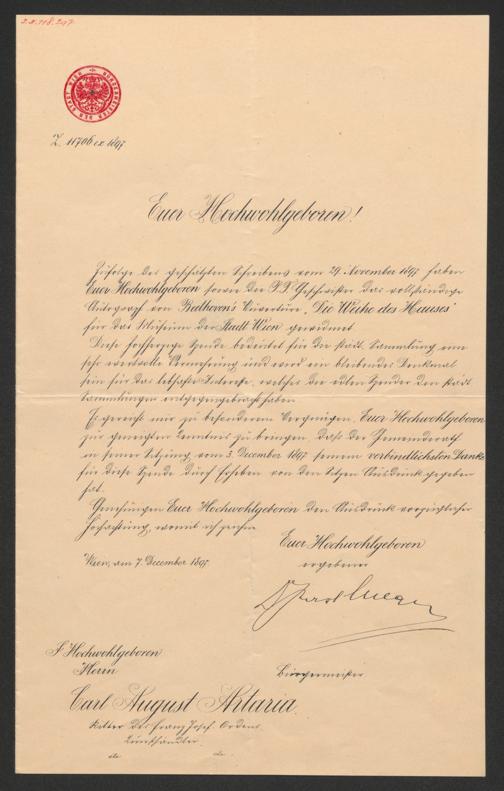 Z. 11706 ex 1897
Euer Hochwohlgeboren!
Zufolge des geschätzten Schreibens vom 29. November 1897 haben
Euer Hochwohlgeboren sowie die P. T. Geschwister das vollständige
Autograf von Beethoven's Ouverture „Die Weihe des Hauses“
für das Museum der Stadt Wien gewidmet.
Diese hochherzige Spende bedeutet für die städt. Sammlung eine
sehr wertvolle Vermehrung und wird ein bleibendes Denkmal
sein für das lebhafte Interesse, welches die edlen Spender den städt.
Sammlungen entgegengebracht haben.
Es gereicht mir zu besonderem Vergnügen, Euer Hochwohlgeboren
zur geneigten Kenntnis zu bringen, daß der Gemeinderath
in seiner Sitzung vom 3. December 1897 seinem verbindlichsten Danke
für diese Spende durch Erheben von den Sitzen Ausdruck gegeben
hat.
Genehmigen Euer Hochwohlgeboren den Ausdruck vorzüglicher
Hochachtung, womit ich zeichne
Euer Hochwohlgeboren
ergebener
Wien, am 7. December 1897
Dr Karl Lueger
Bürgermeister
Hochwohlgeboren
Herrn
Carl August Artaria
Ritter des Franz Josef-Ordens
Kunsthändler